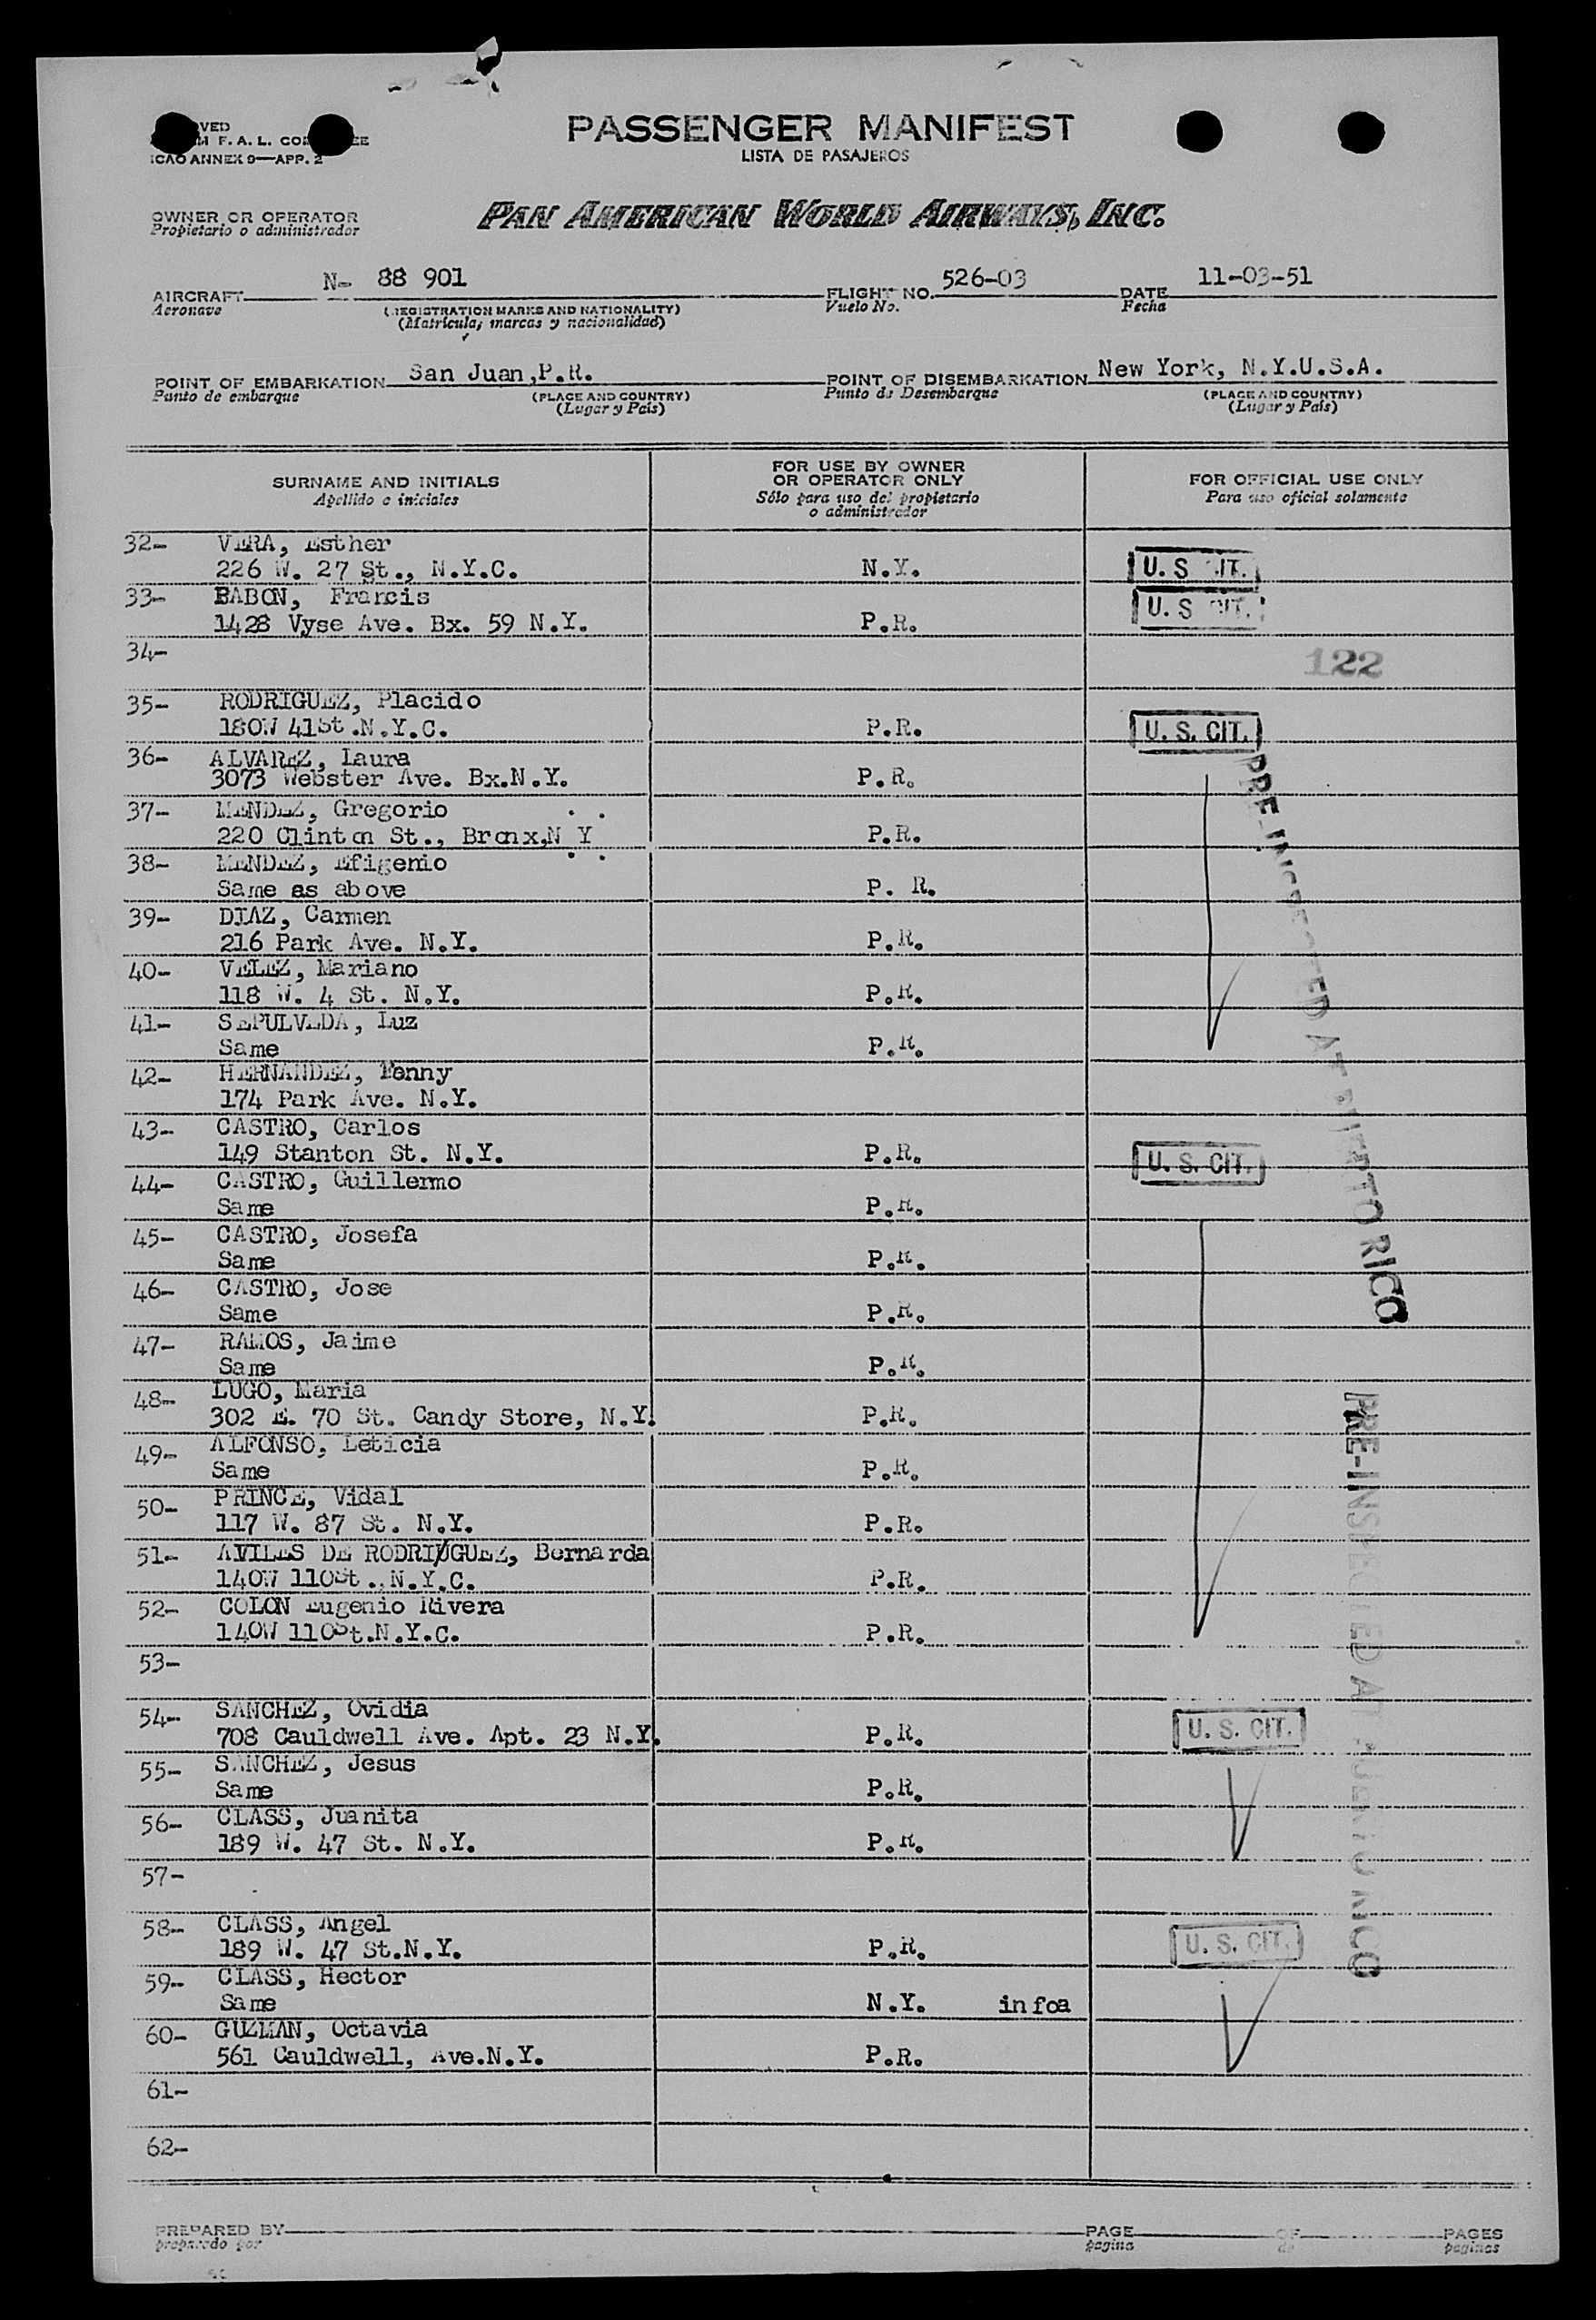 PASSENGER MANIFEST
LISTA DE PASAJEROS
F. A. L.
ICAO ANNEX 9—APP. 2
OWNER OR OPERATOR
Propietario o administrador
PAN AMERICAN WORLD AIRWAYS, INC.
AIRCRAFT N- 88 901 FLIGHT NO. 526-03 DATE 11-03-51
Aeronave (REGISTRATION MARKS AND NATIONALITY) Vuelo No. Fecha
(Matrícula, marcas y nacionalidad)
POINT OF EMBARKATION San Juan,P.R. POINT OF DISEMBARKATION New York, N.Y.U.S.A.
Punto de embarque (PLACE AND COUNTRY) Punto de Desembarque (PLACE AND COUNTRY)
(Lugar y País) (Lugar y País)
SURNAME AND INITIALS
Apellido o iniciales
FOR USE BY OWNER
OR OPERATOR ONLY
Sólo para uso del propietario
o administrador
FOR OFFICIAL USE ONLY
Para uso oficial solamente
32- VERA, Esther
226 W. 27 St., N.Y.C. N.Y. U. S. CIT.
33- BABON, Francis
1428 Vyse Ave. Bx. 59 N.Y. P.R. U. S. CIT.
34- 122
35- RODRIGUEZ, Placido
180W 41St.N.Y.C. P.R. U. S. CIT.
36- ALVAREZ, Laura
3073 Webster Ave. Bx.N.Y. P.R.
37- MENDEZ, Gregorio
220 Clinton St., Bronx,N Y P.R.
38- MENDEZ, Efigenio
Same as above P. R.
39- DIAZ, Carmen
216 Park Ave. N.Y. P.R.
40- VELEZ, Mariano
118 W. 4 St. N.Y. P.R.
41- SEPULVEDA, Luz
Same P.R.
42- HERNANDEZ, Fenny
174 Park Ave. N.Y.
43- CASTRO, Carlos
149 Stanton St. N.Y. P.R. U. S. CIT.
44- CASTRO, Guillermo
Same P.R.
45- CASTRO, Josefa
Same P.R.
46- CASTRO, Jose
Same P.R.
47- RAMOS, Jaime
Same P.R.
48- LUGO, Maria
302 E. 70 St. Candy Store, N.Y. P.R.
49- ALFONSO, Leticia
Same P.R.
50- PRINCE, Vidal
117 W. 87 St. N.Y. P.R.
51- AVILES DE RODRIGUEZ, Bernarda
140W 110St.,N.Y.C. P.R.
52- COLON Eugenio Rivera
140W 110St.N.Y.C. P.R.
53-
54- SANCHEZ, Ovidia
708 Cauldwell Ave. Apt. 23 N.Y. P.R. U. S. CIT.
55- SANCHEZ, Jesus
Same P.R.
56- CLASS, Juanita
189 W. 47 St. N.Y. P.R.
57-
58- CLASS, Angel
189 W. 47 St.N.Y. P.R. U. S. CIT.
59- CLASS, Hector
Same N.Y. infoa
60- GUZMAN, Octavia
561 Cauldwell, Ave.N.Y. P.R.
61-
62-
PRE-INSPECTED AT PUERTO RICO
PRE-INSPECTED AT PUERTO RICO
PREPARED BY PAGE OF PAGES
preparado por página de páginas